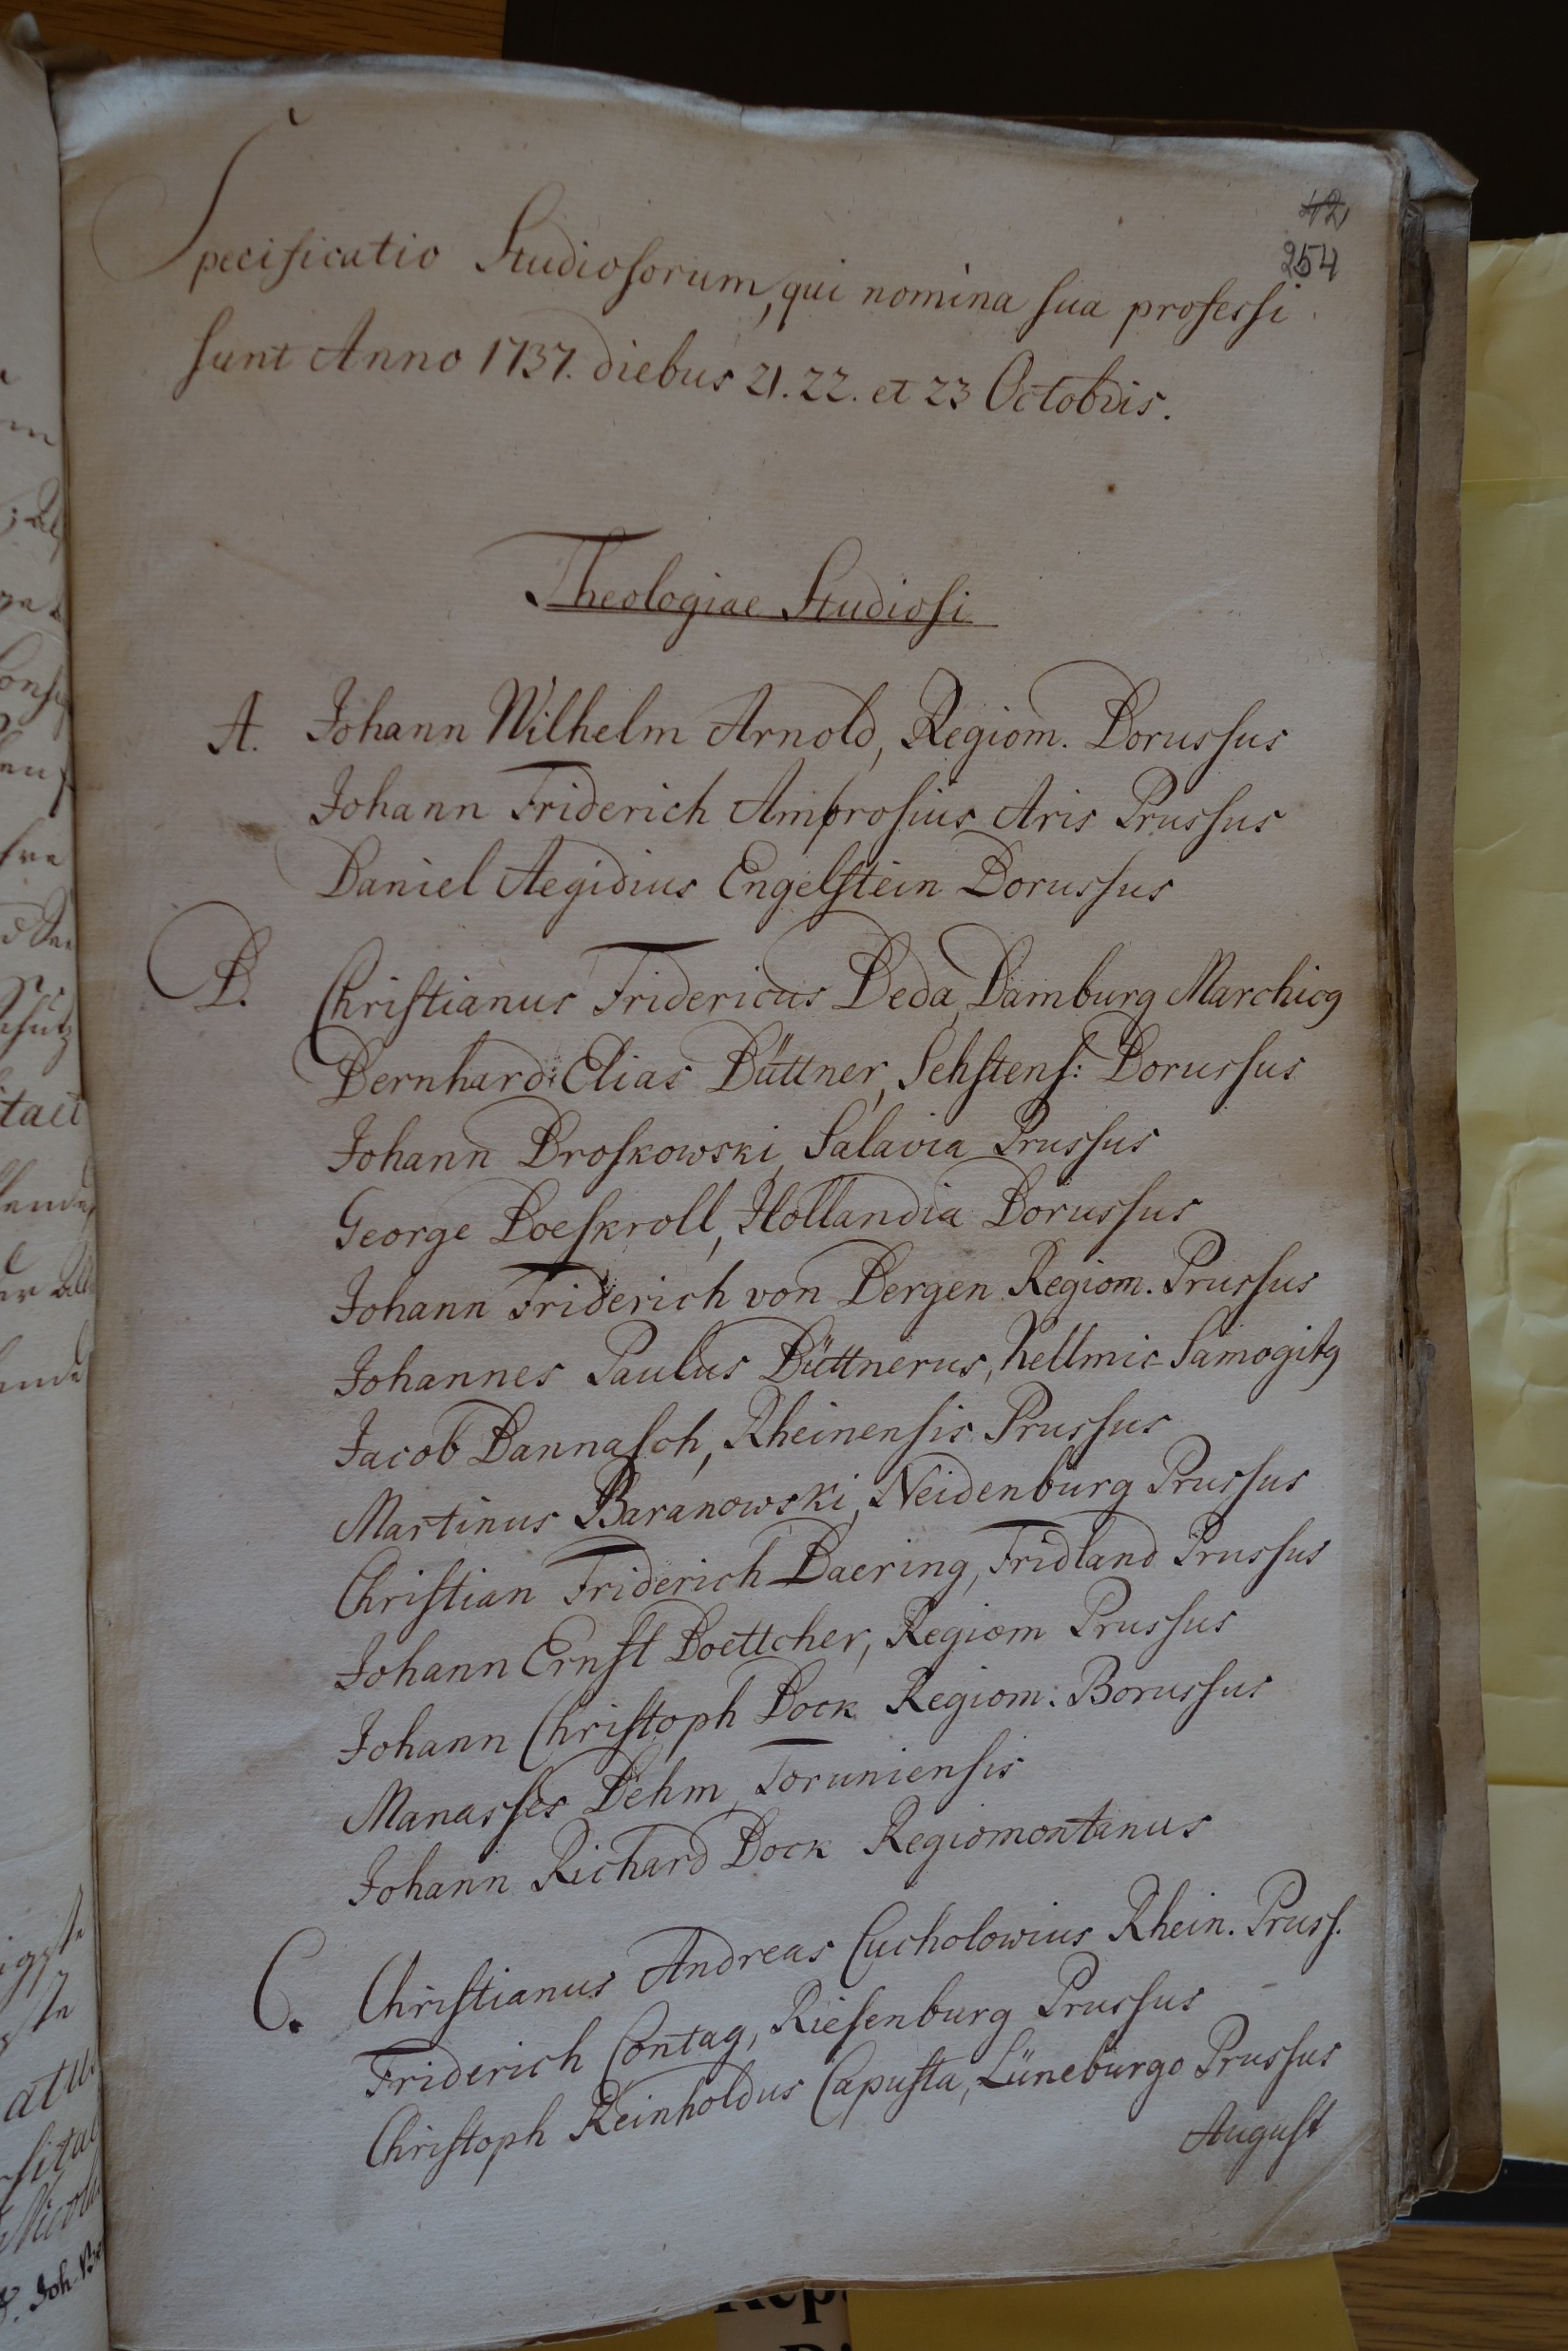 42
254
Specificatio Studiosorum, qui nomina sua professi
sunt Anno 1737. diebus 21. 22. et 23 Octobris.
Theologiae Studiosi
A. Johann Wilhelm Arnold, Regiom. Borussus
Johann Friderich Ambrosius Aris Prussus
Daniel Aegidius Engelstein Borussus
B. Christianus Fridericus Beda, Damburg Marchicq
Bernhard Elias Büttner, Sehstens: Borussus
Johann Broskowski, Salavia Prussus
George Boeskroll, Hollandia Borussus
Johann Friderich von Bergen Regiom. Prussus
Johannes Paulus Büttnerus, Kellmic Samogitq
Jacob Bannasch, Rheinensis Prussus
Martinus Baranowski, Neidenburg Prussus
Christian Friderich Baering, Fridland Prussus
Johann Ernst Boettcher, Regiom Prussus
Johann Christoph Bock Regiom: Borussus
Manasses Behm, Toruniensis
Johann Richard Bock Regiomontanus
C. Christianus Andreas Cucholowius Rhein. Pruss.
Friderich Contag, Riesenburg Prussus
Christoph Reinholdus Capusta, Lüneburgo Prussus
August